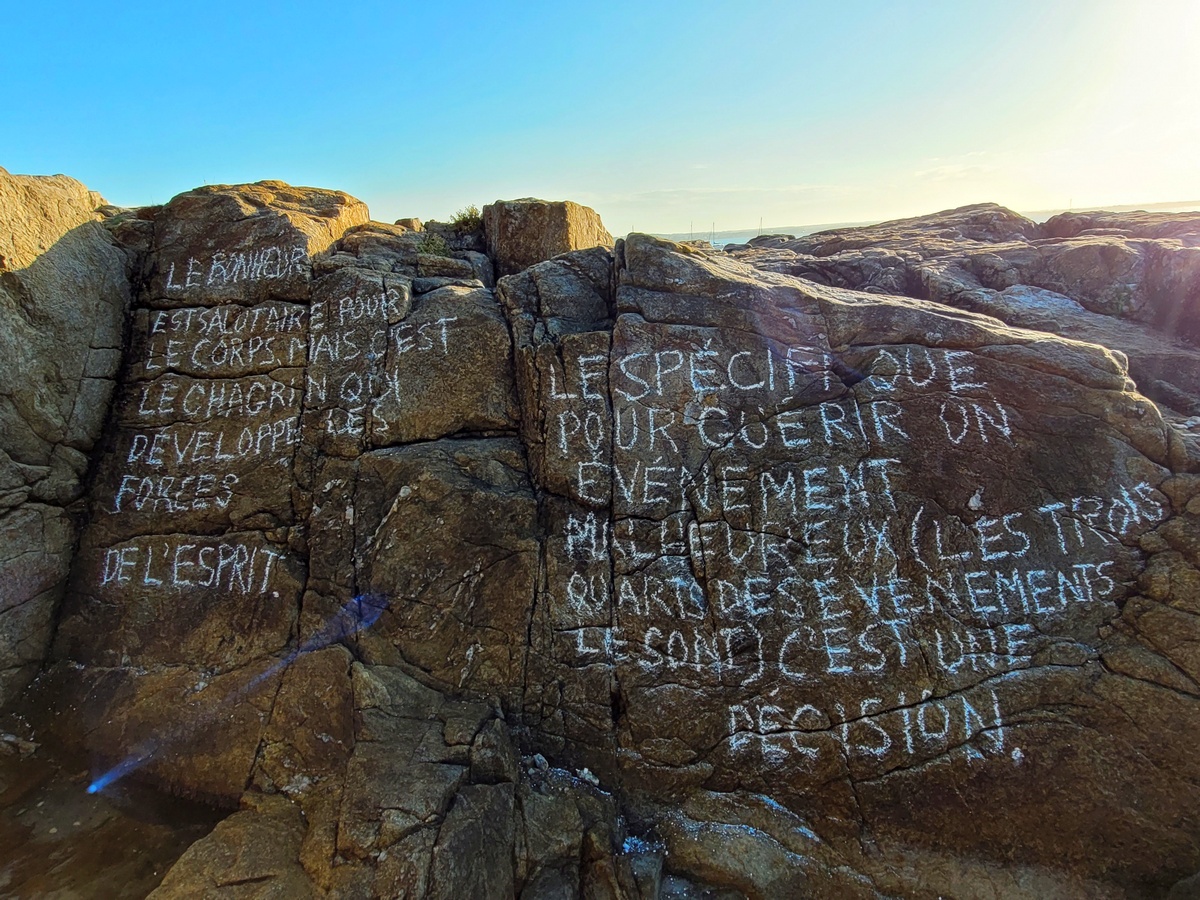 LE BONHEUR
EST SALUTAIRE POUR
LE CORPS, MAIS C'EST
LE CHAGRIN QUI
DÉVELOPPE LES
FORCES
DE L'ESPRIT.
LE SPÉCIFIQUE
POUR GUÉRIR UN
ÉVENEMENT
MALHEUREUX (LES TROIS
QUARTS DES ÉVENEMENTS
LE SONT) C'EST UNE
DÉCISION.